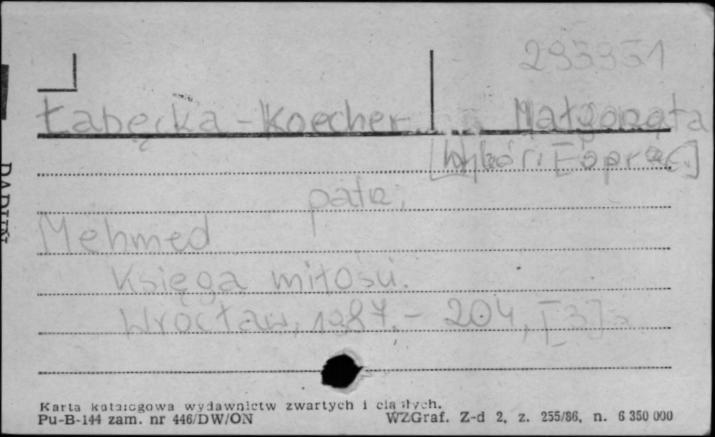 293951
Łabęcka-Koecher Małgorzata
[Wybór i [oprac.]
patz;
Mehmed
Księga miłości.
Wrocław, 1987. - 204, [3] s.
Karta katalogowa wydawnictw zwartych i ciągłych.
Pu-B-144 zam. nr 446/DW/ON WZGraf. Z-d 2, z. 255/86, n. 6 350 000